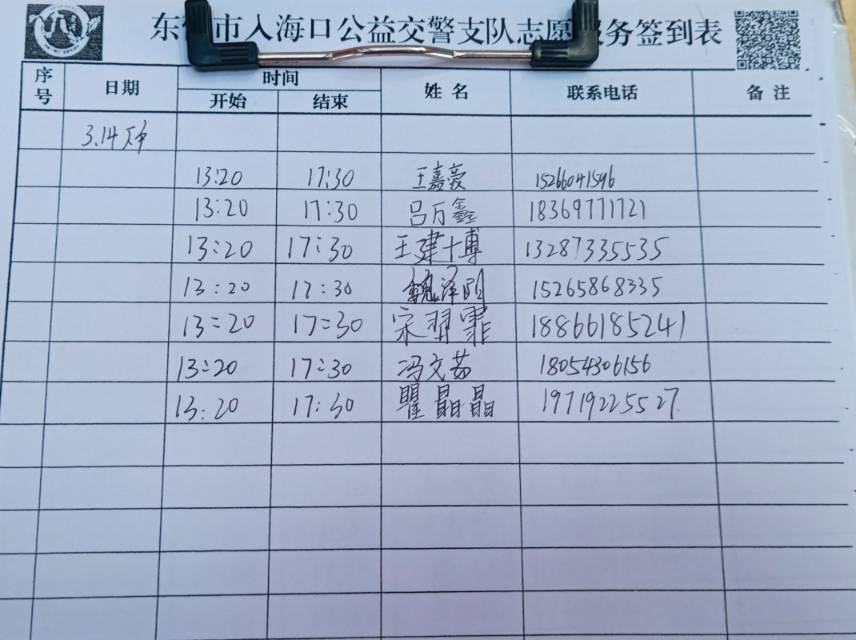 东营市入海口公益交警支队志愿服务签到表
序号 日期 时间 姓名 联系电话 备注
开始 结束
3.14下午
13:20 17:30 王嘉豪 15266041596
13:20 17:30 吕万鑫 18369771721
13:20 17:30 王建博 13287335535
13:20 17:30 魏泽 15265868335
13:20 17:30 宋翌霏 18866185241
13:20 17:30 冯文茹 18054306156
13:20 17:30 瞿晶晶 19719225527